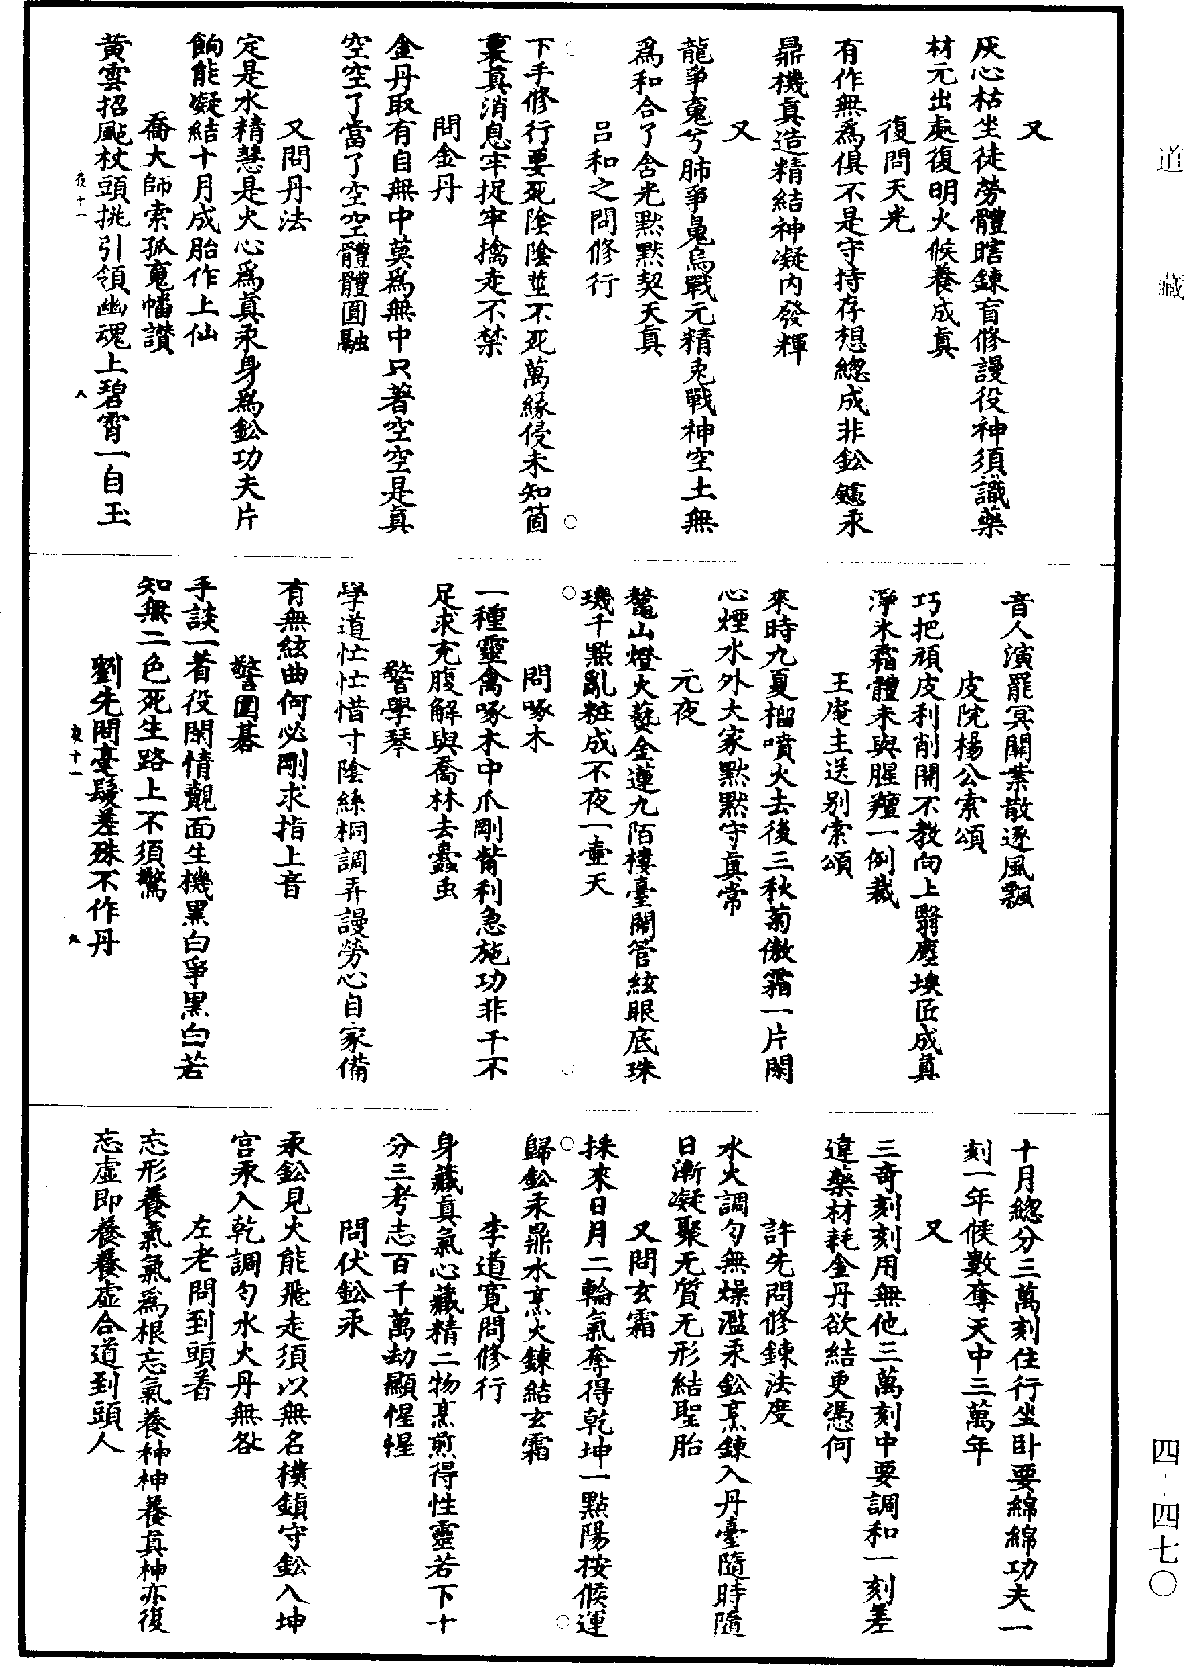 道藏
又
灰心枯坐徒勞體瞎鍊盲修謾役神須識藥
材元出處復明火候養成真
復問天光
有作無爲俱不是守持存想緫成非鈆鑪汞
鼎機真造精結神凝內發輝
又
龍爭䰟兮肺爭鬼烏戰元精兎戰神空土無
爲和合了含光默默契天真
呂和之問修行
下手修行要死陰陰並不死萬緣侵未知箇
裏真消息牢捉牢擒走不禁
問金丹
金丹取有自無中莫爲無中只著空空是真
空空了當了空空體體圓融
又問丹法
定是水精慧是火心爲真汞身爲鈆功夫片
餉能凝結十月成胎作上仙
喬大師索孤䰟幡讚
黄雲招颭杖頭挑引領幽魂上碧霄一自玉
夜十一 八
音人演罷冥關業散逐風飄
皮院楊公索頌
巧把頑皮利削開不教向上翳塵埃匠成真
淨氷霜體未與腥羶一例裁
王庵主送别索頌
來時九夏榴噴火去後三秋菊傲霜一片閑
心煙水外大家默默守真常
元夜
鼇山燈火蓺金蓮九陌樓臺鬧管絃眼底珠
璣千點亂粧成不夜一壷天
問啄木
一種靈禽啄木中爪剛觜利急施功非干不
足求充腹解與喬林去蠹虫
警學琴
學道忙忙惜寸陰絲桐調弄謾勞心自家備
有無絃曲何必剛求指上音
警圍碁
手談一着役閑情覿面生機黒白爭黒白若
知無二色死生路上不須驚
劉先問毫髮差殊不作丹
夜十一 九
十月緫分三萬刻住行坐卧要綿綿功夫一
刻一年候數奪天中三萬年
又
三奇刻刻用無他三萬刻中要調和一刻差
違藥材耗金丹欲結更憑何
許先問修鍊法度
水火調匀無燥濫汞鈆烹鍊入丹臺隨時隨
日漸凝聚无質无形結聖胎
又問玄霜
採來日月二輪氣奪得乾坤一點陽按候運
歸鈆汞鼎水烹火鍊結玄霜
李道寛問修行
身藏真氣心藏精二物烹煎得性靈若下十
分三考志百千萬劫顯惺惺
問伏鈆汞
汞鈆見火能飛走須以無名樸鎮守鈆入坤
宫汞入乾調匀水火丹無咎
左老問到頭看
忘形養氣氣爲根忘氣養神神養真神亦復
忘虛即養養虛合道到頭人
四-四七〇